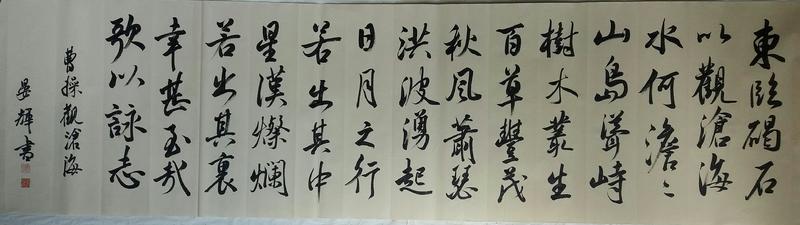 東臨碣石
以觀滄海
水何澹〻
山島聳峙
樹木叢生
百草豐茂
秋風蕭瑟
洪波湧起
日月之行
若出其中
星漢燦爛
若出其裏
幸甚至哉
歌以詠志
曹操觀滄海
書